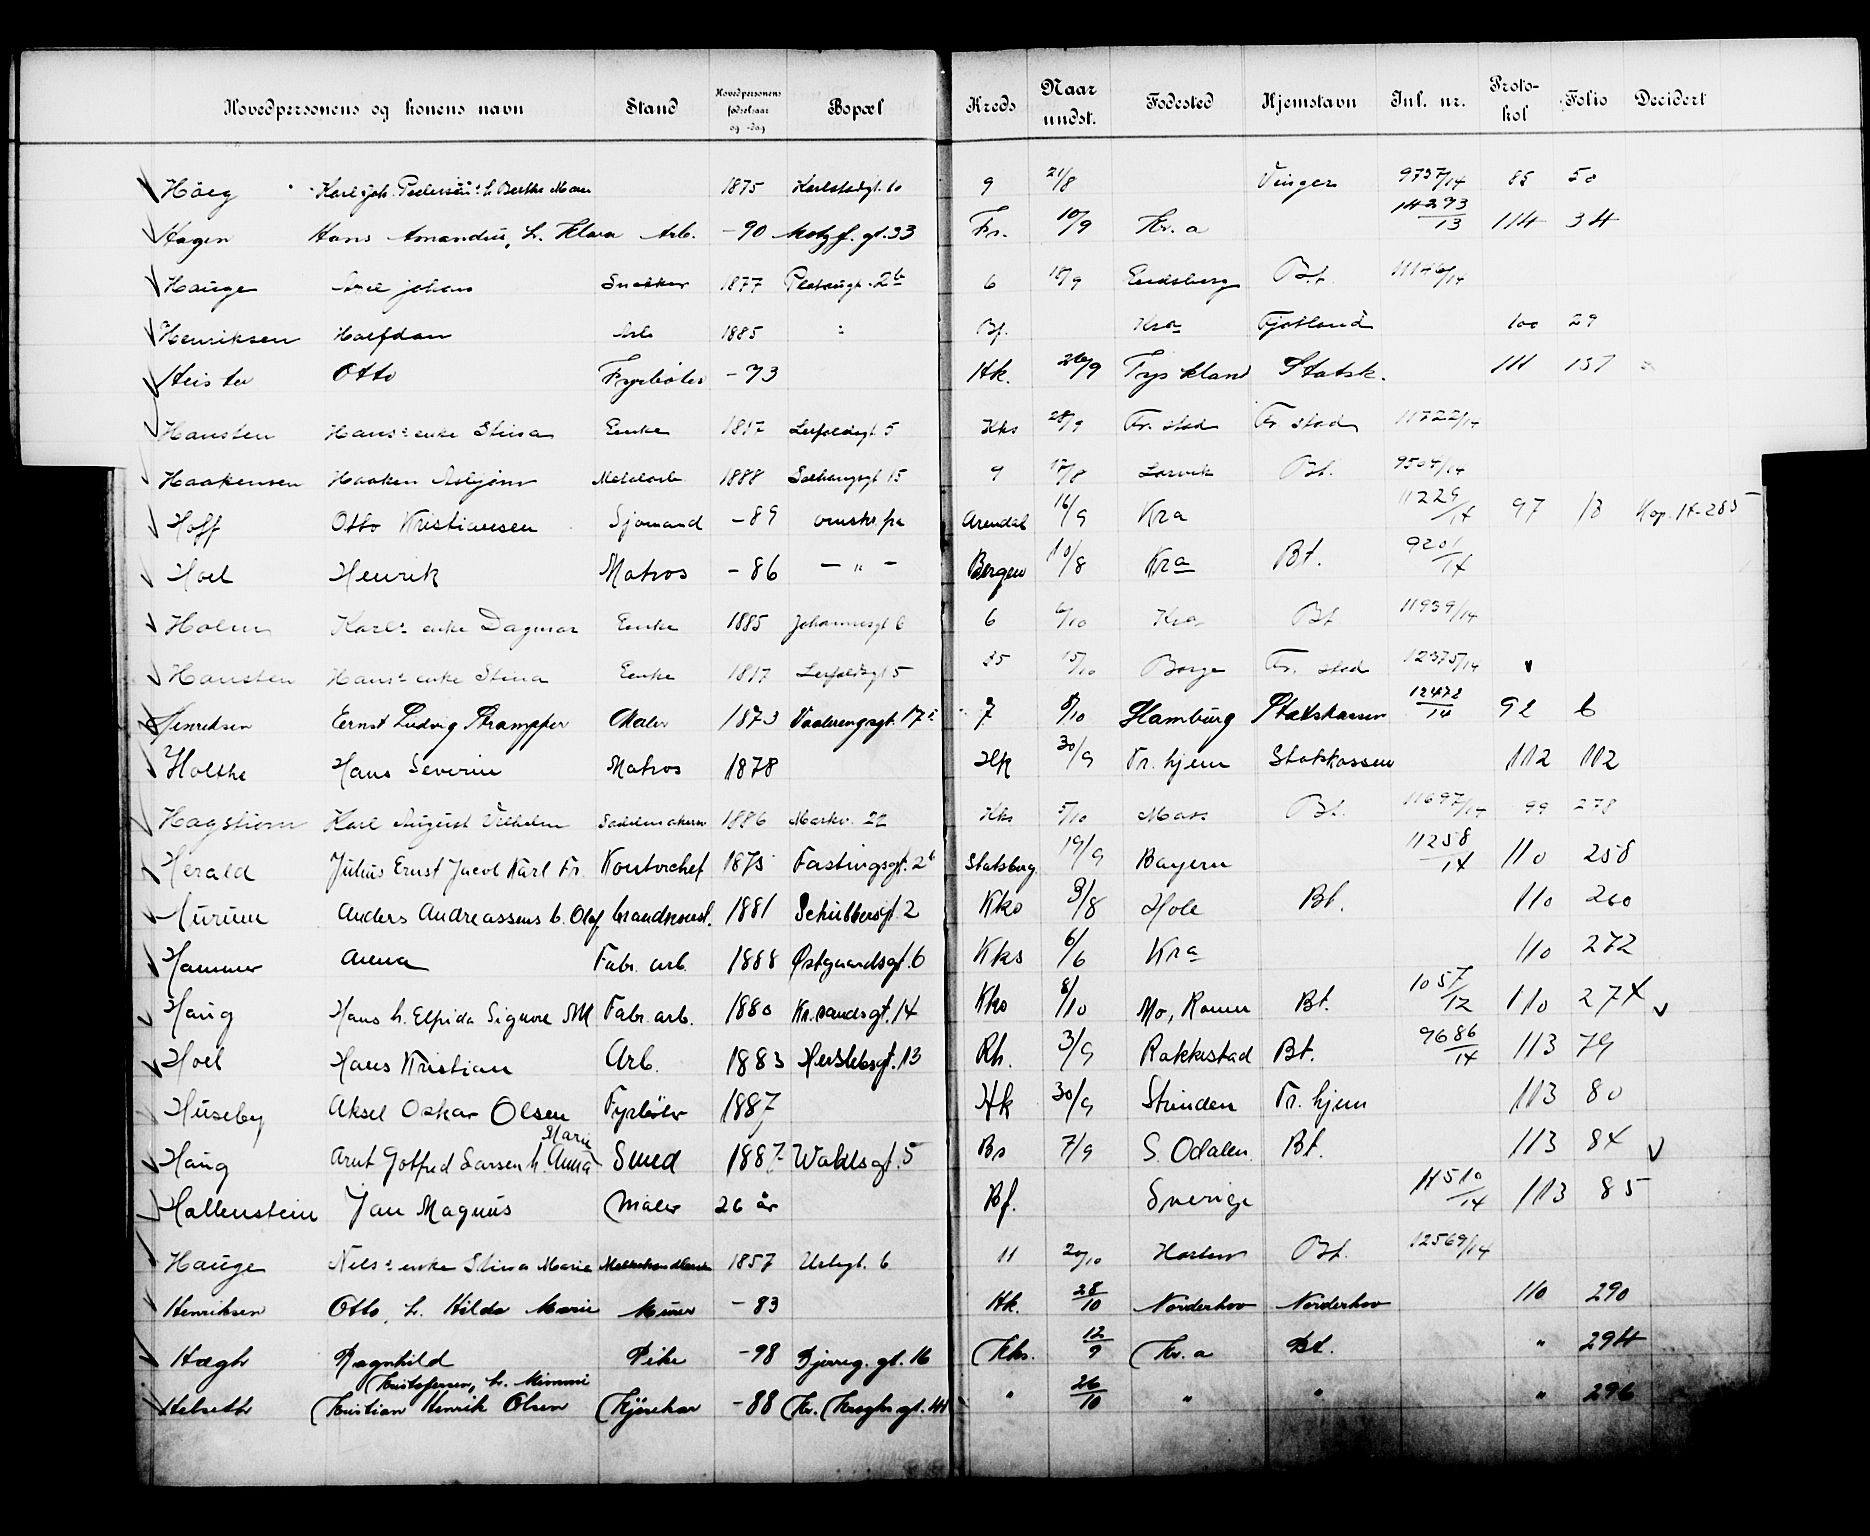 Hovedpersonens og konens navn Stand Hovedpersonens fødselsaar og -dag Bopæl Kreds Naar undst. Fødested Hjemstavn Inl. nr. Protokol Folio Decidert
Høeg Karl Joh. Pedersen h. Berthe Marie 1875 Karlstadgt. 10 9 21/8 Vinger 9737/14 85 50
Hagen Hans Amandus, h. Klara Arb. -90 Motzf. gt. 33 Fr. 10/9 Kr.a 14293/13 114 34
Hauge Axel Johan Snekker 1877 Platougt. 2b 6 18/9 Eidsberg Bt. 11146/14
Henriksen Halfdan Arb 1885 Bf. Kra Fjotland 100 29
Heister Otto Fyrbøter -73 Hk. 26/9 Tyskland Statsk. 111 157
Hansten Hans's enke Stina Enke 1817 Leirfaldsgt 5 Kks 28/9 Fr. stad Fr stad 11722/14
Haakensen Haaken Asbjørn Metalarb. 1888 15 9 17/8 Larvik Bt. 9504/14
Hoff Otto Kristiansen Sjømand -89 omstr. pa Arendal 16/9 Kra 11229/14 97 13 Kop. 14-285
Hoel Henrik Matros -86 - " - Bergen 10/8 Kra Bt. 9201/14
Holm Karl's enke Dagmar Enke 1885 Johannesgt 6 6 6/10 Kra Bt 11939/14
Hansten Hans's enke Stina Enke 1817 Leirfaldsgt 5 35 15/10 Borge Fr. stad 12375/14
Henriksen Ernst Ludvig Strampfer Maler 1873 Vaalerengsgt. 17 7 8/10 Hamburg Statskassen 12472/14 92 6
Holthe Hans Severin Matros 1878 Hk 30/9 Tr. hjem Statskassen 112 112
Hagstrøm Karl August Vilhelm Sadelmakersv 1886 Markv. 22 Kks 5/10 Moss Bt. 11697/14 99 278
Herald Julius Ernst Jacob Karl Fr. Kontorchef 1875 Fastingsgt. 2b Statsberg 19/9 Bayern 11258/14 110 258
Hurum Anders Andreassens h. Olaf brandkonst. 1881 Schübbersgt. 2 Kks 3/8 Hole Bt. 110 260
Hammer Anna Fabr. arb. 1888 Østgaardsgt. 6 Kks 6/6 Kra 110 272
Haug Hans h. Elfrida Signora M Fabr. arb. 1880 Kr.sandsgt. 14 Kks 8/10 Mo, Romr. Bt. 1057/12 110 274
Hoel Hans Kristian Arb. 1883 Herslebsgt. 13 Rh. 3/9 Rakkestad Bt. 9686/14 113 79
Huseby Aksel Oskar Olsen Fyrbøter 1887 Hk 30/9 Strinden Tr. hjem 113 80
Haug Arnt Gotfred Larsen h. Anna Marie Smed 1887 Waldsgt. 5 Bs 7/9 S. Odalen Bt. 113 84
Hallenstein Jan Magnus Maler 26 år Bf. Sverige 14510/14 113 85
Hauge Nils's enke Stina Marie Melkehandlerske 1857 Urtegt. 6 11 20/10 Horten Bt. 12569/14
Henriksen Otto, h. Hilda Marie Murer -83 Hk. 28/10 Norderhov Norderhov 110 290
Høgh Ragnhild Pike -98 Bjerreg. gt. 16 Kks. 12/9 Kr.a Bt. " 294
Kristofersen, h. Mimmi
Helseth Kristian Henrik Olsen Kjørekar -88 Kr. Kroghs gt. 44 " 26/10 " " " 296